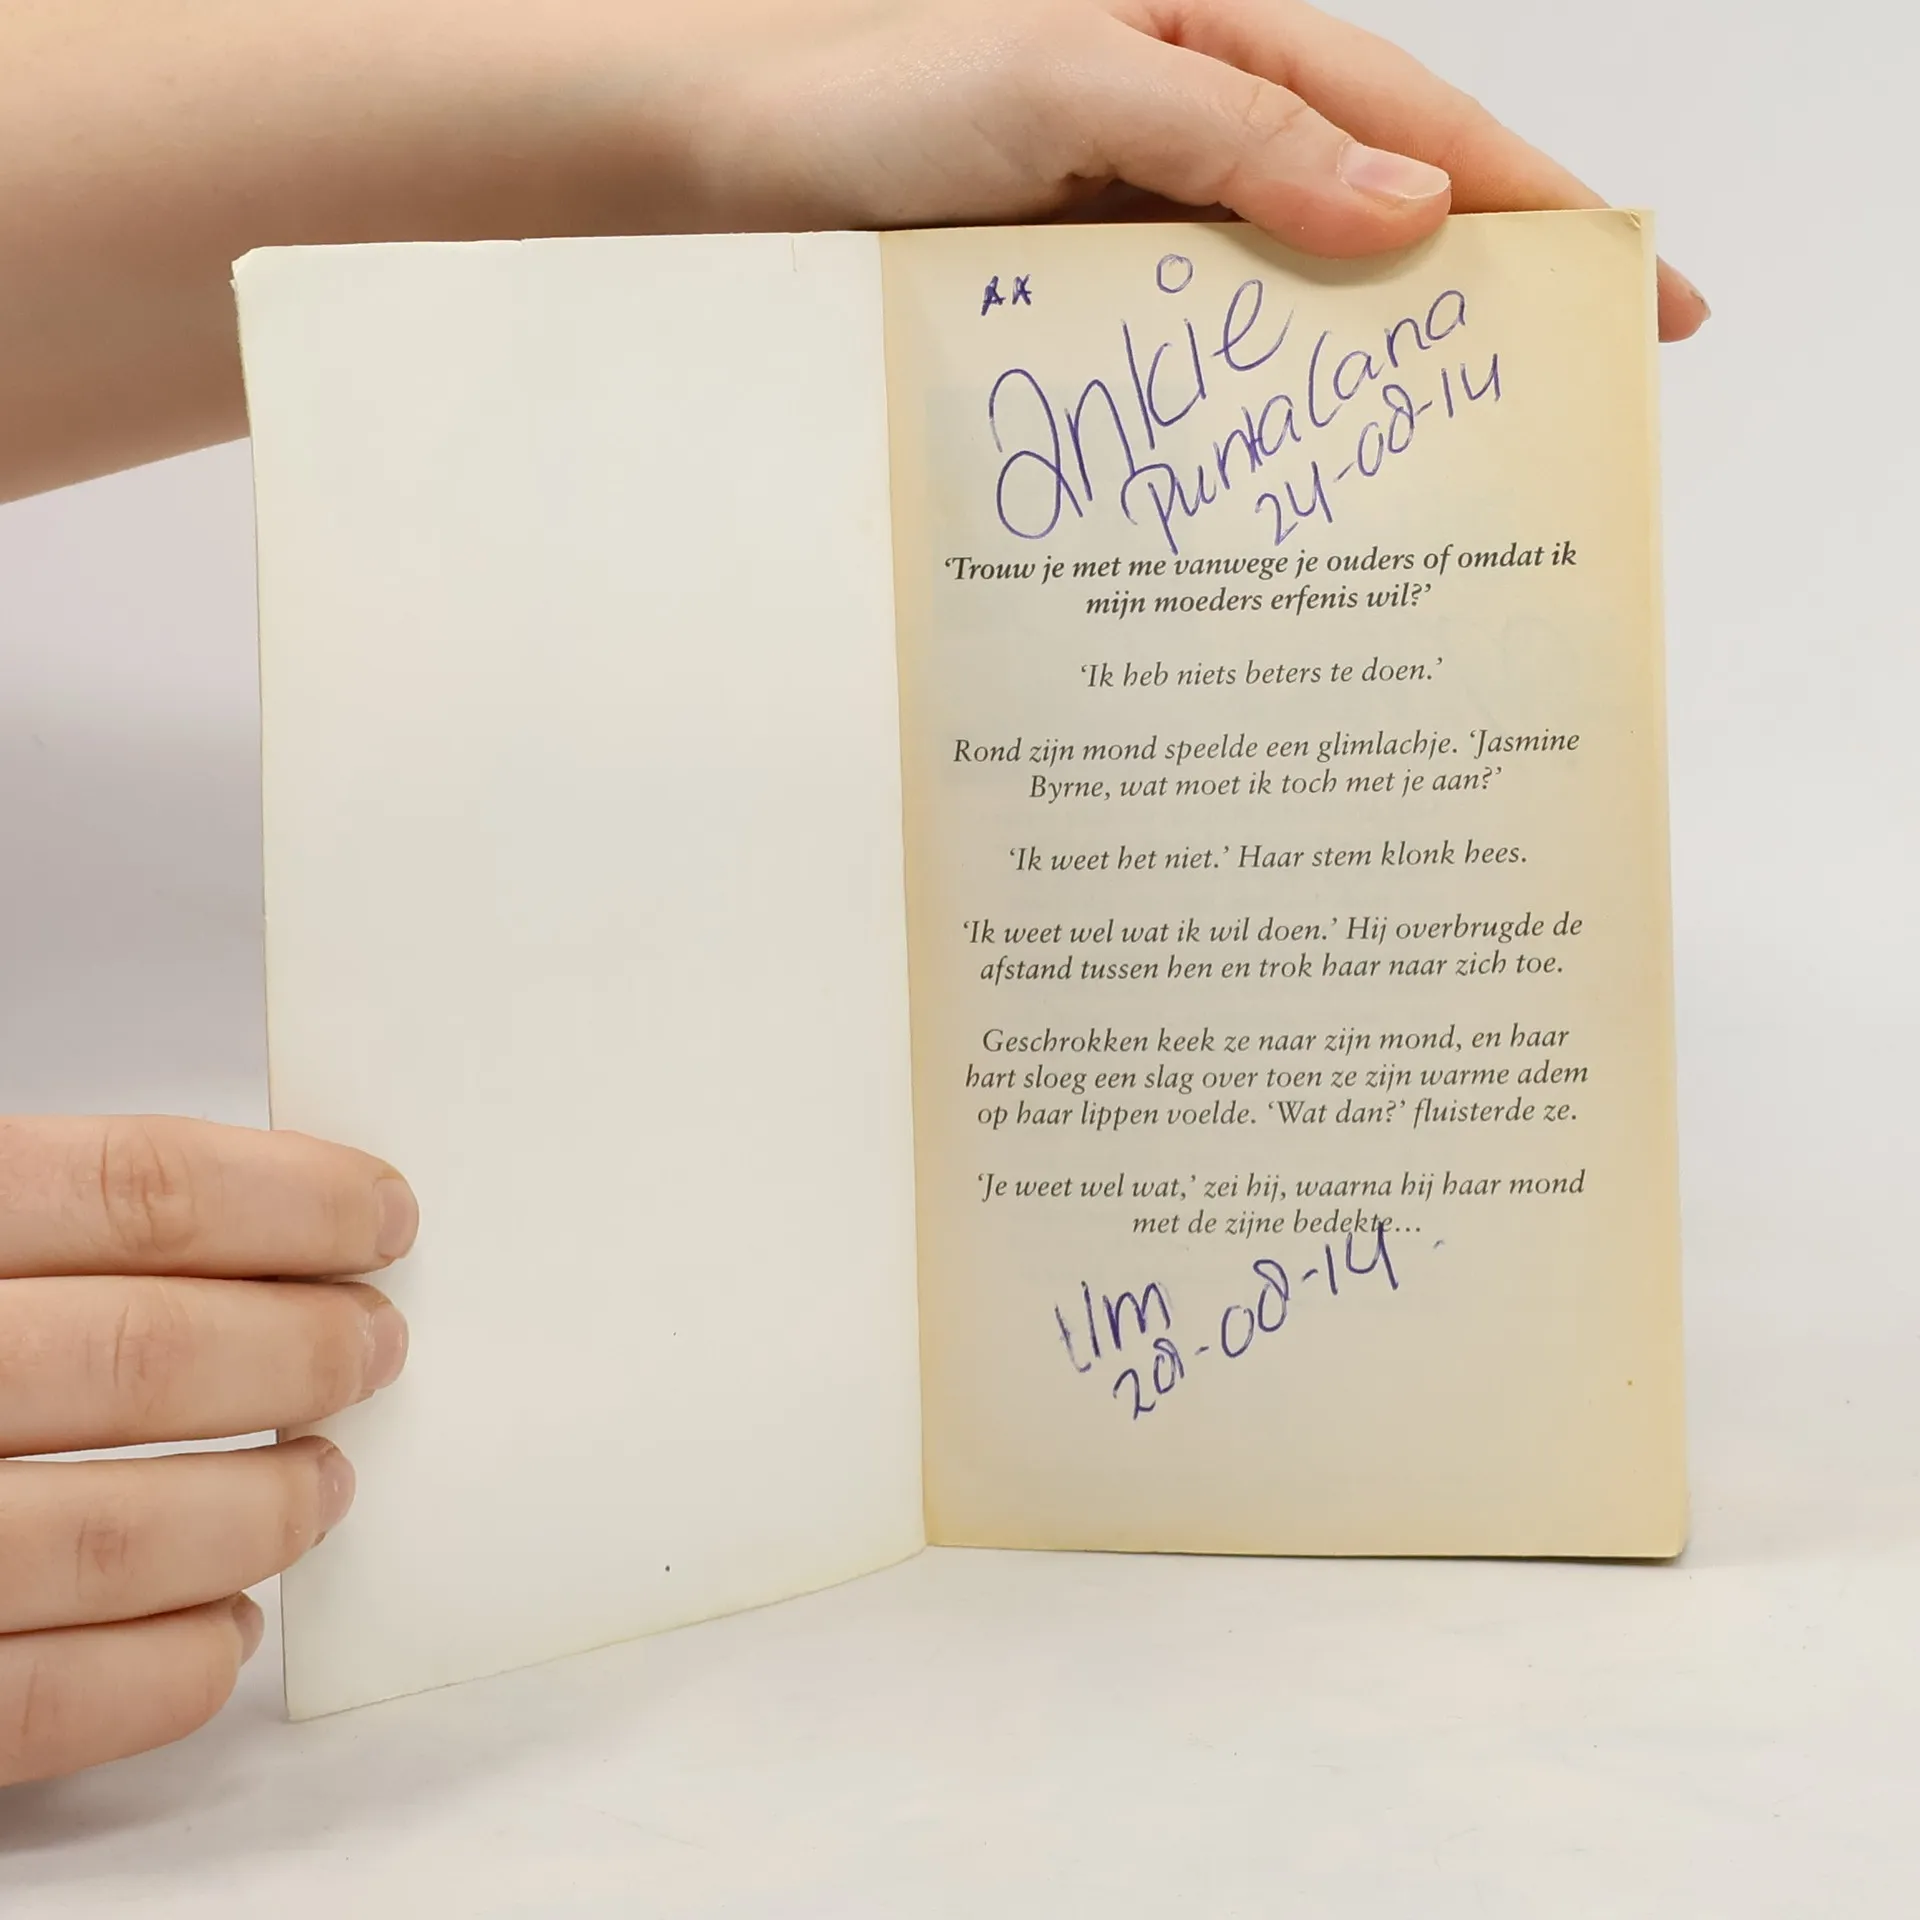 Ankie
Punta Cana
24-08-14
‘Trouw je met me vanwege je ouders of omdat ik
mijn moeders erfenis wil?’
‘Ik heb niets beters te doen.’
Rond zijn mond speelde een glimlachje. ‘Jasmine
Byrne, wat moet ik toch met je aan?’
‘Ik weet het niet.’ Haar stem klonk hees.
‘Ik weet wel wat ik wil doen.’ Hij overbrugde de
afstand tussen hen en trok haar naar zich toe.
Geschrokken keek ze naar zijn mond, en haar
hart sloeg een slag over toen ze zijn warme adem
op haar lippen voelde. ‘Wat dan?’ fluisterde ze.
‘Je weet wel wat,’ zei hij, waarna hij haar mond
met de zijne bedekte...
28-08-14